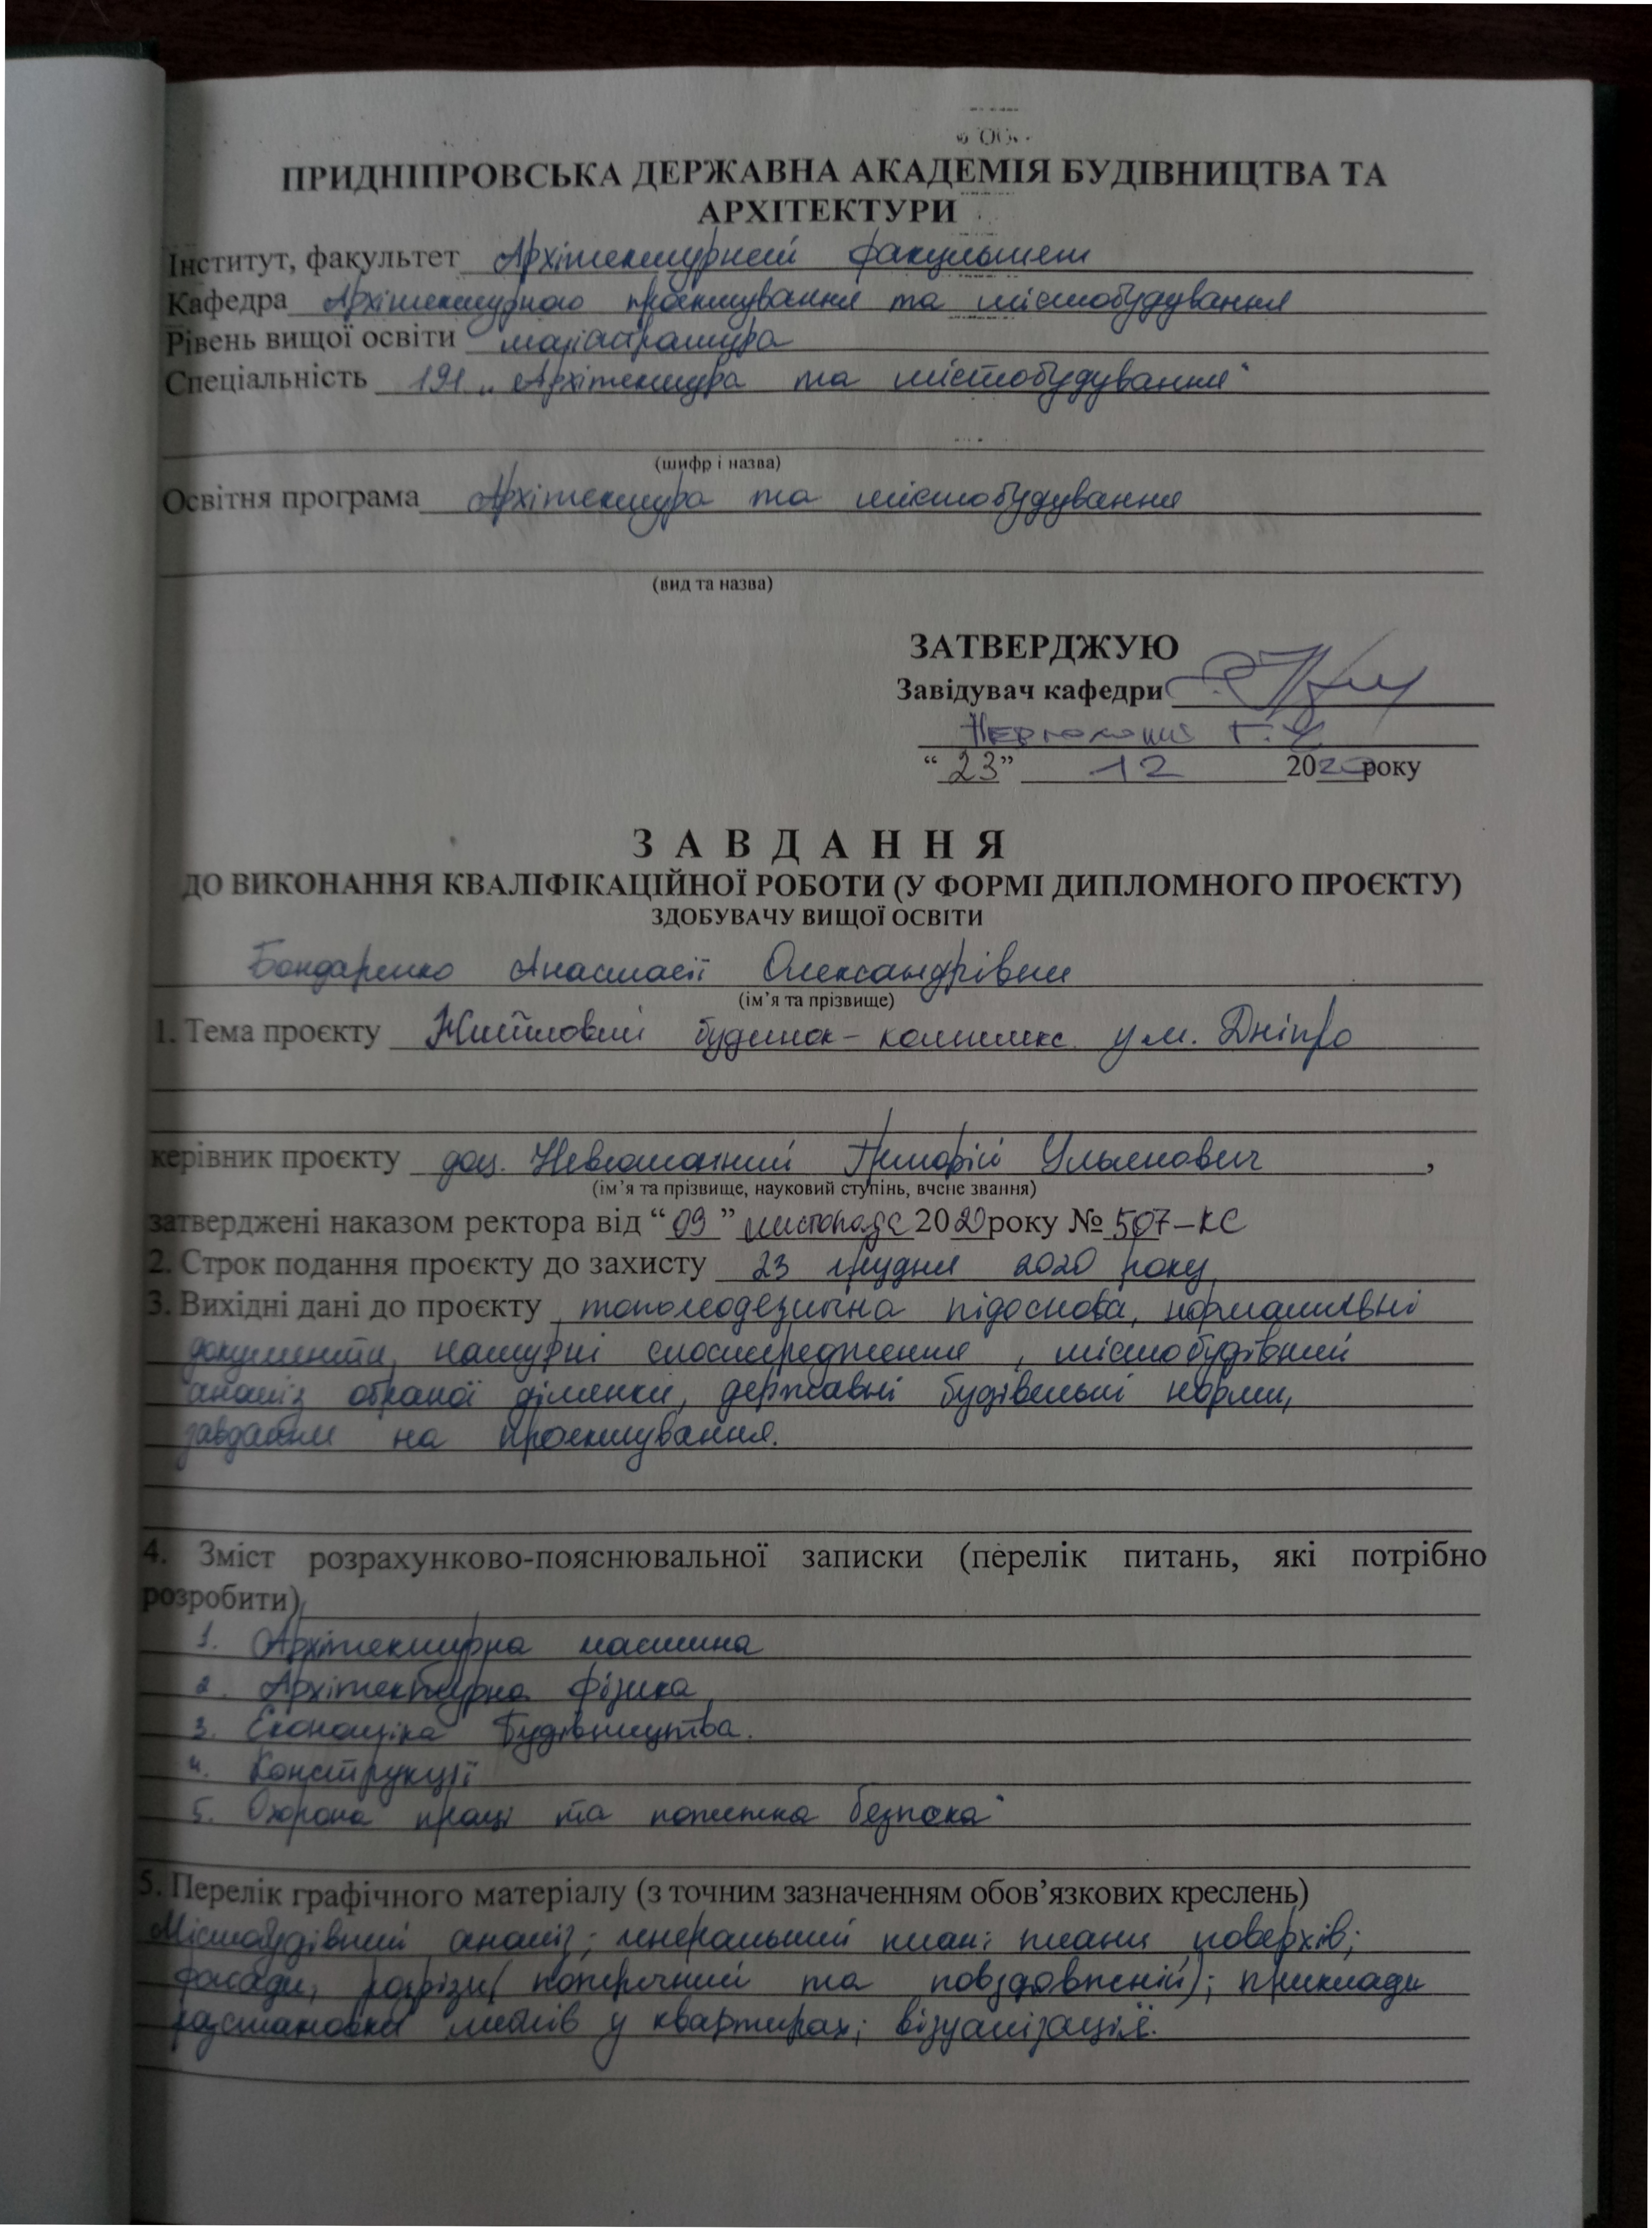 ПРИДНІПРОВСЬКА ДЕРЖАВНА АКАДЕМІЯ БУДІВНИЦТВА ТА
АРХІТЕКТУРИ
Інститут, факультет Архітектурний факультет
Кафедра Архітектурного проектування та містобудування
Рівень вищої освіти магістратура
Спеціальність 191 „Архітектура та містобудування"
(шифр і назва)
Освітня програма Архітектура та містобудування
(вид та назва)
ЗАТВЕРДЖУЮ
Завідувач кафедри
Г.У
“23” 12 2020року
З А В Д А Н Н Я
ДО ВИКОНАННЯ КВАЛІФІКАЦІЙНОЇ РОБОТИ (У ФОРМІ ДИПЛОМНОГО ПРОЄКТУ)
ЗДОБУВАЧУ ВИЩОЇ ОСВІТИ
Бондаренко Анастасії Олександрівни
(ім’я та прізвище)
1. Тема проєкту Житловий будинок-комплекс у м. Дніпро
керівник проєкту доц. Григорій Ульянович,
(ім’я та прізвище, науковий ступінь, вчене звання)
затверджені наказом ректора від “09” листопада 2020року № 507-КС
2. Строк подання проєкту до захисту 23 грудня 2020 року
3. Вихідні дані до проєкту топогеодезична підоснова, нормативні
документи, натурні спостередження, містобудівний
аналіз обраної ділянки, державні будівельні норми,
завдання на проектування.
4. Зміст розрахунково-пояснювальної записки (перелік питань, які потрібно
розробити)
1. Архітектурна частина
2. Архітектурна фізика
3. Економіка будівництва.
4. Конструкції
5. Охорона праці та пожежна безпека
5. Перелік графічного матеріалу (з точним зазначенням обов’язкових креслень)
Містобудівний аналіз; генеральний план; плани поверхів;
фасади, розрізи (поперечний та повздовжній); приклади
розстановки меблів у квартирах; візуалізації.